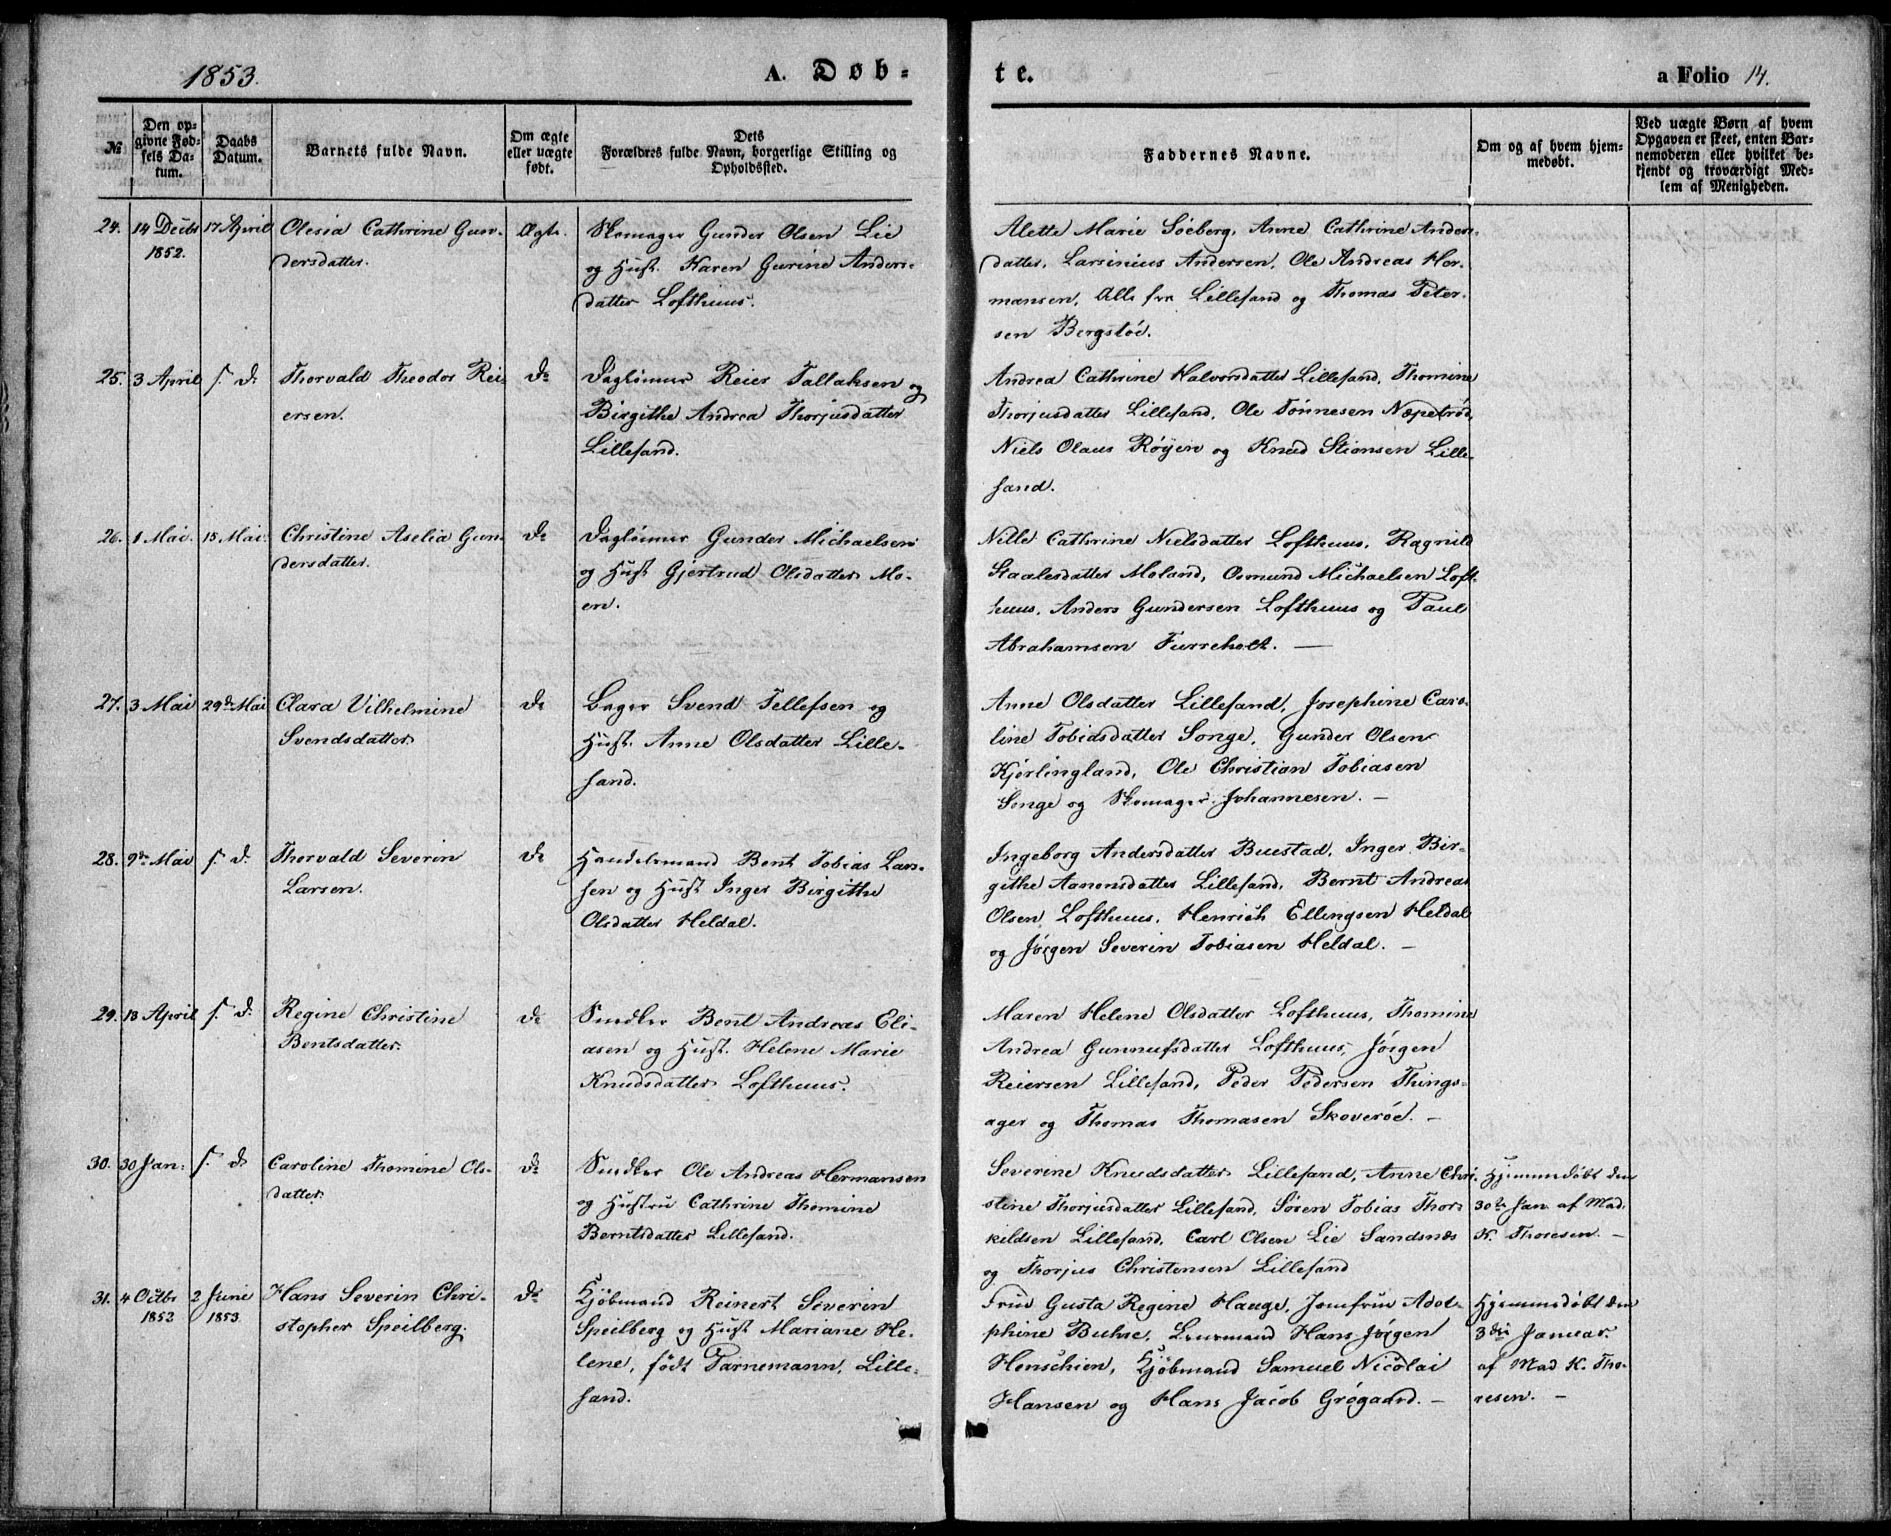 1853.
A. Døb-
te.
a Folio 14.
№
Den op-
givne Fød-
sels Da-
tum.
Daabs
Datum.
Barnets fulde Navn.
Om ægte
eller uægte
født.
Dets
Forældres fulde Navn, borgerlige Stilling og
Opholdssted.
Faddernes Navne.
Om og af hvem hjem-
medøbt.
Ved uægte Børn af hvem
Opgaven er skeet, enten Bar-
nemoderen eller hvilket be-
kjendt og troværdigt Med-
lem af Menigheden.
24. 14 Decbr 17 April Olesia Cathrine Gun-
1852.
dersdatter.
Ægte.
Skomager Gunder Olsen Lie
og Hust. Karen Gurine Anders-
datter Lofthuus.
Alette Marie Söeberg, Anne Cathrine Anders-
datter, Larsinius Andersen, Ole Andreas Her-
mansen, Alle fra Lillesand og Thomas Peter-
sen Bergstöe.
25. 3 April s. D. Thorvald Theodor Rei-
ersen.
Do
Daglönner Reier Tallaksen og
Birgithe Andrea Thorjusdatter
Lillesand.
Andrea Cathrine Halvorsdatter Lillesand, Thomine
Thorjusdatter Lillesand, Ole Tönnesen Næpetröd,
Niels Olaus Röyen og Knud Stiansen Lille-
sand.
26. 1 Mai. 15 Mai. Christine Aselia Gun-
dersdatter.
Do
Daglönner Gunder Michaelsen
og Hust Gjertrud Olsdatter Mo-
en.
Nille Cathrine Nielsdatter Lofthuus, Ragnild
Staalesdatter Moland, Osmund Michaelsen Loft-
huus, Anders Gundersen Lofthuus og Paul
Abrahamsen Furreholt. —
27. 3 Mai 29de Mai Clara Vilhelmine
Svendsdatter.
Do
Bager Svend Tellefsen og
Hust. Anne Olsdatter Lille-
sand.
Anne Olsdatter Lillesand, Josephine Caro-
line Tobiasdatter Songe, Gunder Olsen
Kjörlingland, Ole Christian Tobiasen
Songe og Skomager Johannesen. —
28. 9de Mai s. D. Thorvald Severin
Larsen.
Do
Handelsmand Bent Tobias Lar-
sen og Hust Inger Birgithe
Olsdatter Heldal.
Ingeborg Andersdatter Buestad, Inger Bir-
githe Aanonsdatter Lillesand, Bernt Andreas
Olsen Lofthuus, Henrich Ellingsen Heldal
og Jörgen Severin Tobiasen Heldal. —
29. 18 April s. D. Regine Christine
Bentsdatter.
Do
Snedker Bent Andreas Eli-
asen og Hust. Helene Marie
Knudsdatter Lofthuus.
Maren Helene Olsdatter Lofthuus, Thomine
Andrea Gunnufsdatter Lofthuus, Jörgen
Reiersen Lillesand, Peder Pedersen Things-
ager og Thomas Thomasen Skoveröe. —
30. 30 Jan. s. D. Caroline Thomine Ols-
datter.
Do
Snedker Ole Andreas Hermansen
og Hustru Cathrine Thomine
Berntsdatter Lillesand.
Severine Knudsdatter Lillesand, Anne Chri-
stine Thorjusdatter Lillesand, Sören Tobias Thor-
kildsen Lillesand, Carl Olsen Lie Sandsnæs
og Thorjus Christensen Lillesand
Hjemmedøbt den
30te Jan. af Mad.
K. Thoresen. —
31. 4 Octbr 2 Juni Hans Severin Chri-
1852 1853
stopher Speilberg.
Do
Kjöbmand Reinert Severin
Speilberg og Hust Mariane He-
lene, födt Parnemann, Lille-
sand.
Frue Gusta Regine Hauge, Jomfrue Adol-
phine Buhre, Hans Jörgen
Henschien, Kjöbmand Samuel Nicolai
Hansen og Hans Jacob Grögaard. —
Hjemmedøbt den
3die Januar.
af Mad K. Tho-
resen. —